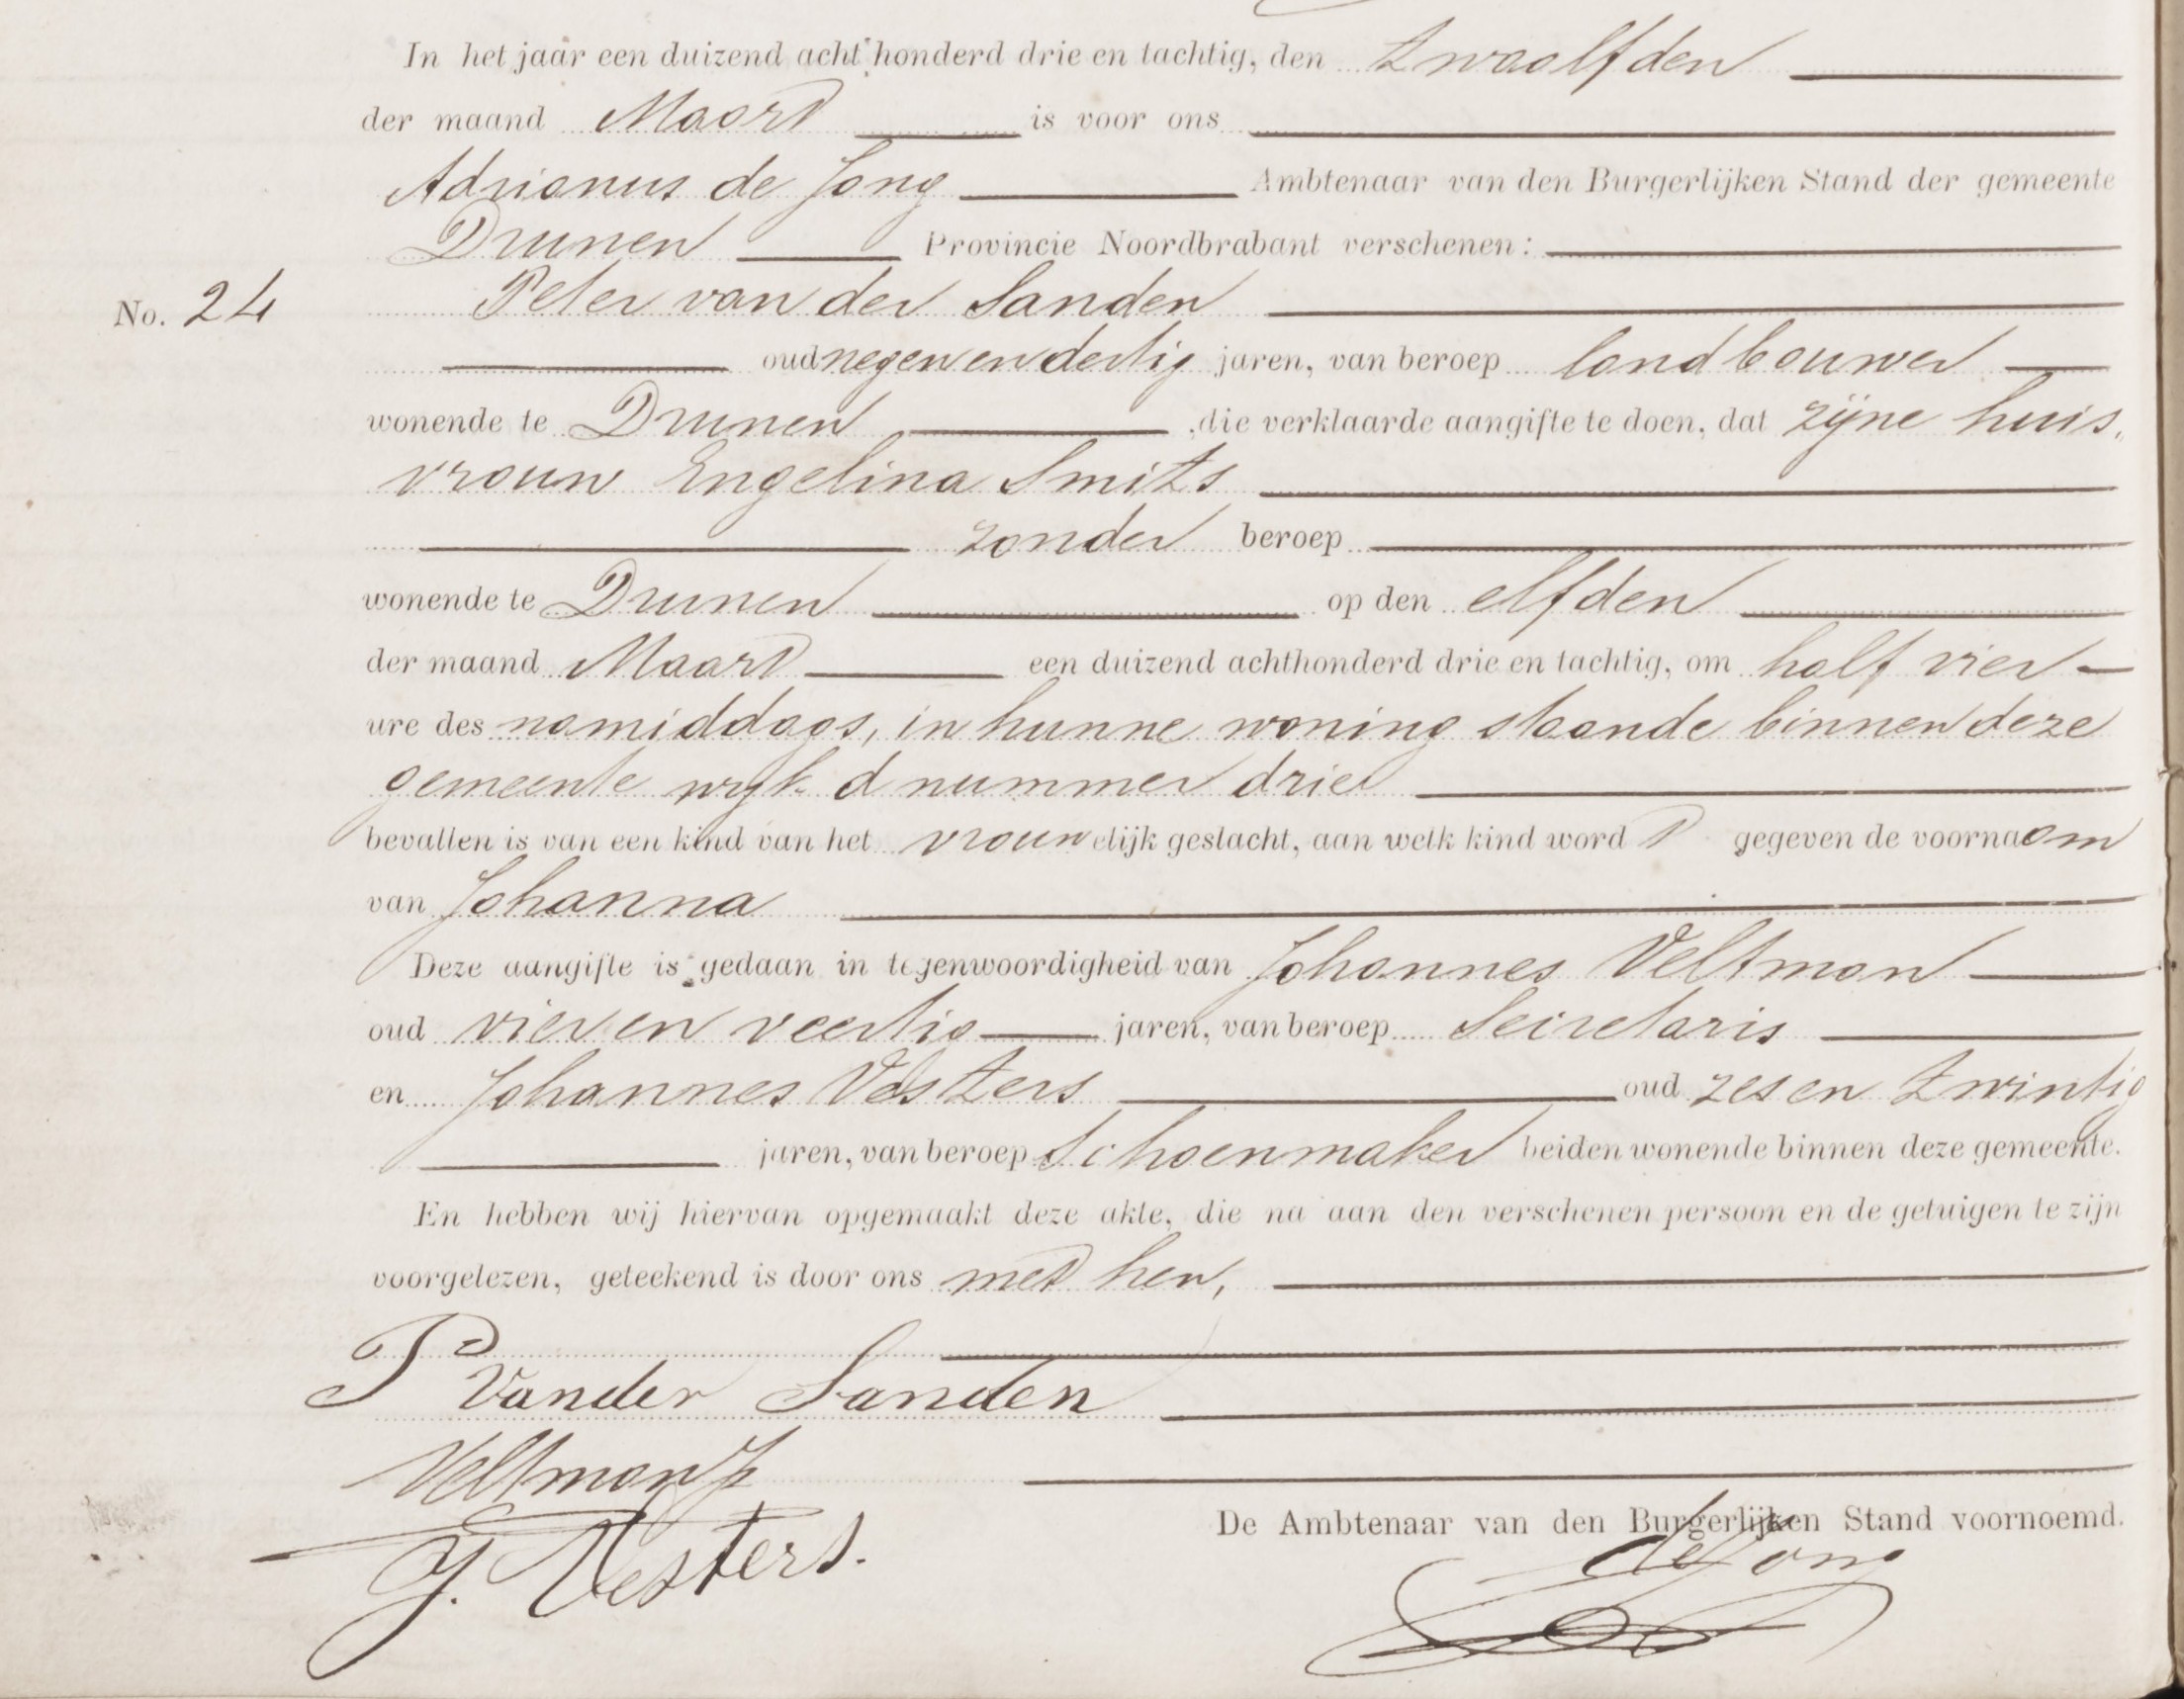 In het jaar een duizend acht honderd drie en tachtig, den twaalfden
der maand Maart is voor ons
Adrianus de Jong Ambtenaar van den Burgerlijken Stand der gemeente
Drunen Provincie Noordbrabant verschenen:
No. 24 Peter van der Sanden
oud negen en dertig jaren, van beroep landbouwer
wonende te Drunen, die verklaarde aangifte te doen, dat zijne huis,
vrouw Engelina Smits
zonder beroep
wonende te Drunen op den elfden
der maand Maart een duizend achthonderd drie en tachtig, om half vier
ure des namiddags, in hunne woning staande binnen deze
gemeente wijk d nummer drie
bevallen is van een kind van het vrouwelijk geslacht, aan welk kind word t gegeven de voornaam
van Johanna
Deze aangifte is gedaan in tegenwoordigheid van Johannes Veltman
oud vier en veertig jaren, van beroep Secretaris
en Johannes Vesters oud zes en twintig
jaren, van beroep Schoenmaker beiden wonende binnen deze gemeente.
En hebben wij hiervan opgemaakt deze akte, die na aan den verschenen persoon en de getuigen te zijn
voorgelezen, geteekend is door ons met hen,
P Vander Sanden
Veltman
J. Vesters.
De Ambtenaar van den Burgerlijken Stand voornoemd.
de Jong